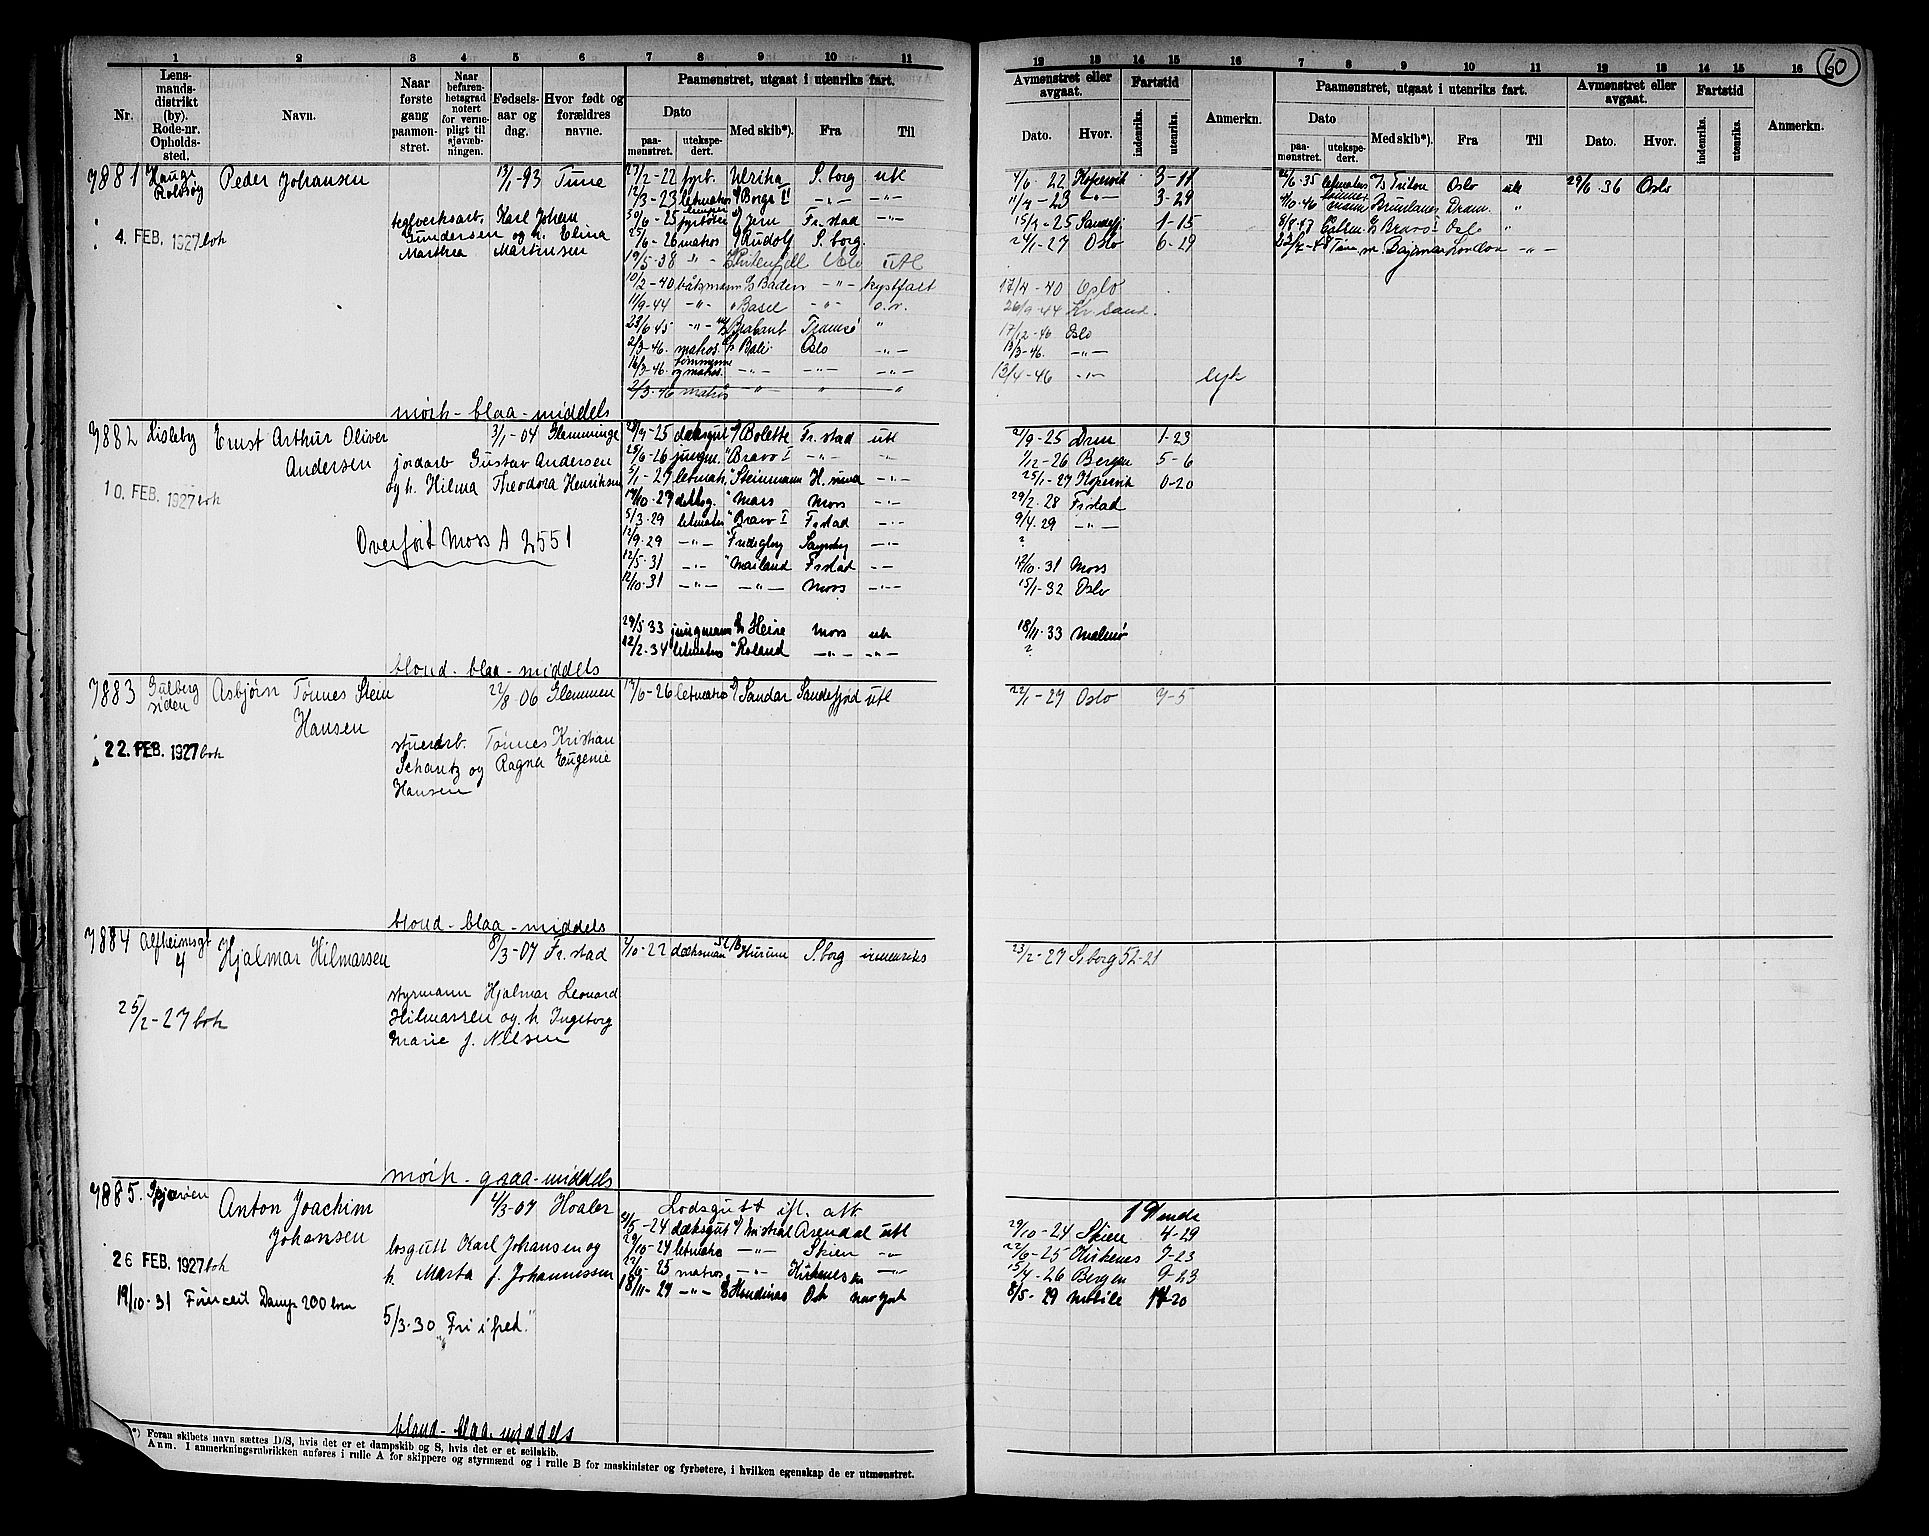 60
1 2 3 4 5 6 7 8 9 10 11
Nr.
Lens-
mands-
distrikt
(by).
Rode-nr.
Opholds-
sted.
Navn.
Naar
første
gang
paamøn-
stret.
Naar
befaren-
hetsgrad
notert
for verne-
pligt til
sjøvæb-
ningen.
Fødsels-
aar og
dag.
Hvor født og
forældres
navne.
Paamønstret, utgaat i utenriks fart.
Dato
paa-
mønstret.
utekspe-
dert.
Med skib*).
Fra
Til
12 13 14 15 16 7 8 9 10 11 12 13 14 15 16
Avmønstret eller
avgaat.
Dato.
Hvor.
Fartstid
indenriks.
utenriks.
Anmerkn.
Paamønstret, utgaat i utenriks fart.
Dato
paa-
mønstret.
utekspe-
dert.
Med skib*).
Fra
Til
Avmønstret eller
avgaat.
Dato.
Hvor.
Fartstid
indenriks.
utenriks.
Anmerkn.
7881 Hauge Rolvsøy Peder Johansen 13/1-93 Tune
4. FEB. 1927 bok
teglverksarb. Karl Johan
Gundersen og h. Elina
Marthea Martinsen
27/2-22 fyrb. Ulrika S.borg utl 4/6-22 Kopervik 3-11
12/3-23 letmatros Borgs II -„- -„- 11/7-23 -„- 3-29
30/6-25 fyrbøter Jern Fr.stad -„- 15/7-25 Sandefj. 1-15
25/6-26 matros Rudolf S.borg 24/1-27 Oslo 6-29
19/5-38 -„- Oslo utl
10/2-40 båtsmann Baden -„- kystfart 17/4-40 Oslo
11/9-44 -„- Basel -„- o.r. 26/9-44 Kr.sand.
23/6-45 -„- Brabant Tromsø „ 17/12-46 Oslo
2/3-46. matros Bali Oslo -„- 13/3-46. -„-
16/3-46. tømmerm. og matros. -„- -„- -„- 13/4-46 -„- lyk
2/3-46 matros „ „ „
26/6-35 letmatros Triton Oslo utl 29/6 36 Oslo
tømmermann Brunlanes Dram. „
Bravo I Oslo „
London -„-
mørk - blaa - middels
7882 Lisleby Ernst Arthur Oliver
Andersen
3/1-04 Glemminge
10. FEB. 1927 bok
jordarb Gustav Andersen
og h. Hilma Theodora Henriksen
Overført Moss A 2551
28/7-25 dæksgut Bolette Fr.stad utl 2/9-25 Drm 1-23
25/6-26 jungm. Bravo I -„- -„- 1/12-26 Bergen 5-6
5/1-27 letmatr. Steinmann -„- 25/1-27 Kopervik 0-20
17/10-27 deksg. Mars Moss -„- 29/2-28 Frstad
5/3-29 letmatros Bravo I Frstad -„- 9/4-29 -„-
12/9-29 -„- Fredsglag Sarpsborg -„- ?
12/5-31 -„- Mailand Frstad -„- 12/10-31 Moss
12/10-31 -„- -„- Moss -„- 15/1-32 Oslo
29/5 33 jungmann Heire Moss utl 18/11-33 Malmø
12/2-34 letmatros Roland -„- -„- ?
blond - blaa - middels
7883 Gulberg
siden Asbjørn Tønnes Stein
Hansen
22/8 06 Glemmen
22. FEB. 1927 bok
stuerarb. Tønnes Kristian
Schantz og Ragna Eugenie
Hansen
17/6-26 letmatros Sandar Sandefjord utl 22/1-27 Oslo 7-5
blond - blaa - middels
7884 Alfheimsgt
4 Hjalmar Hilmarsen
8/3-07 Fr.stad
25/2-27 bok
styrmann Hjalmar Leonard
Hilmarsen og h Ingeborg
Marie f. Nilsen
7/10-22 dæksmand Hurum S.borg innenriks 23/2-27 S.borg 52-21
mørk - graa - middels
7885. Spjærøen Anton Joachim
Johansen
4/3-07 Hvaler
26 FEB. 1927 bok
losgutt Karl Johansen og
h Marta f. Johannissen
19/10-31
5/3-30 „Fri i fred."
Lodsgutt ifl. att. 19 mndr
2/5-24 dæksgut Mistral Arendal utl 29/10-24 Skien 4-29
29/10-24 letmatros -„- Skien -„- 22/6-25 Kirkenes 7-23
22/6-25 matros -„- Kirkenes -„- 15/4-26 Bergen 9-23
18/11-27 -„- Hondinas New York 8/5-29 Mobile 17-20
blond - blaa - middels
*) Foran skibets navn sættes D/S, hvis det er et dampskib og S, hvis det er et seilskib.
Anm. I anmerkningsrubrikken anføres i rulle A for skippere og styrmænd og i rulle B for maskinister og fyrbøtere, i hvilken egenskap de er utmønstret.